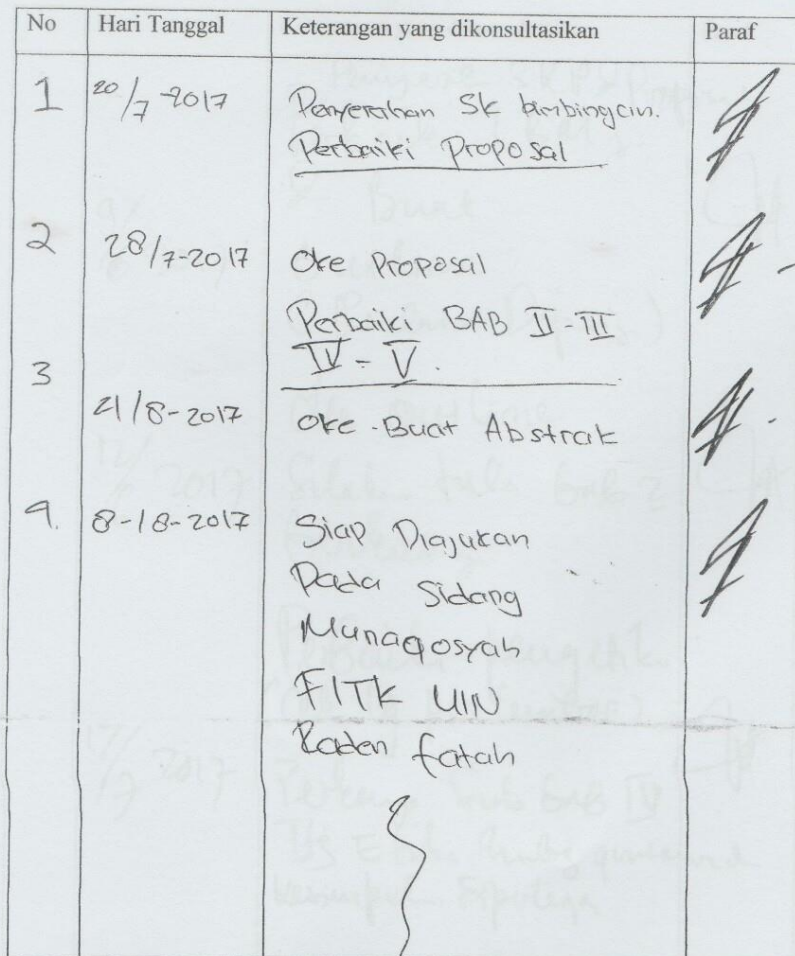 No Hari Tanggal Keterangan yang dikonsultasikan Paraf
1 20/7-2017 Penyerahan Sk bimbingan.
Perbaiki Proposal
2 28/7-2017 Oke Proposal
Perbaiki BAB II-III
IV-V.
3
21/8-2017 Oke-Buat Abstrak
4. 8-18-2017 Siap Diajukan
Pada Sidang
Munaqosyah
FITK UIN
Raden fatah